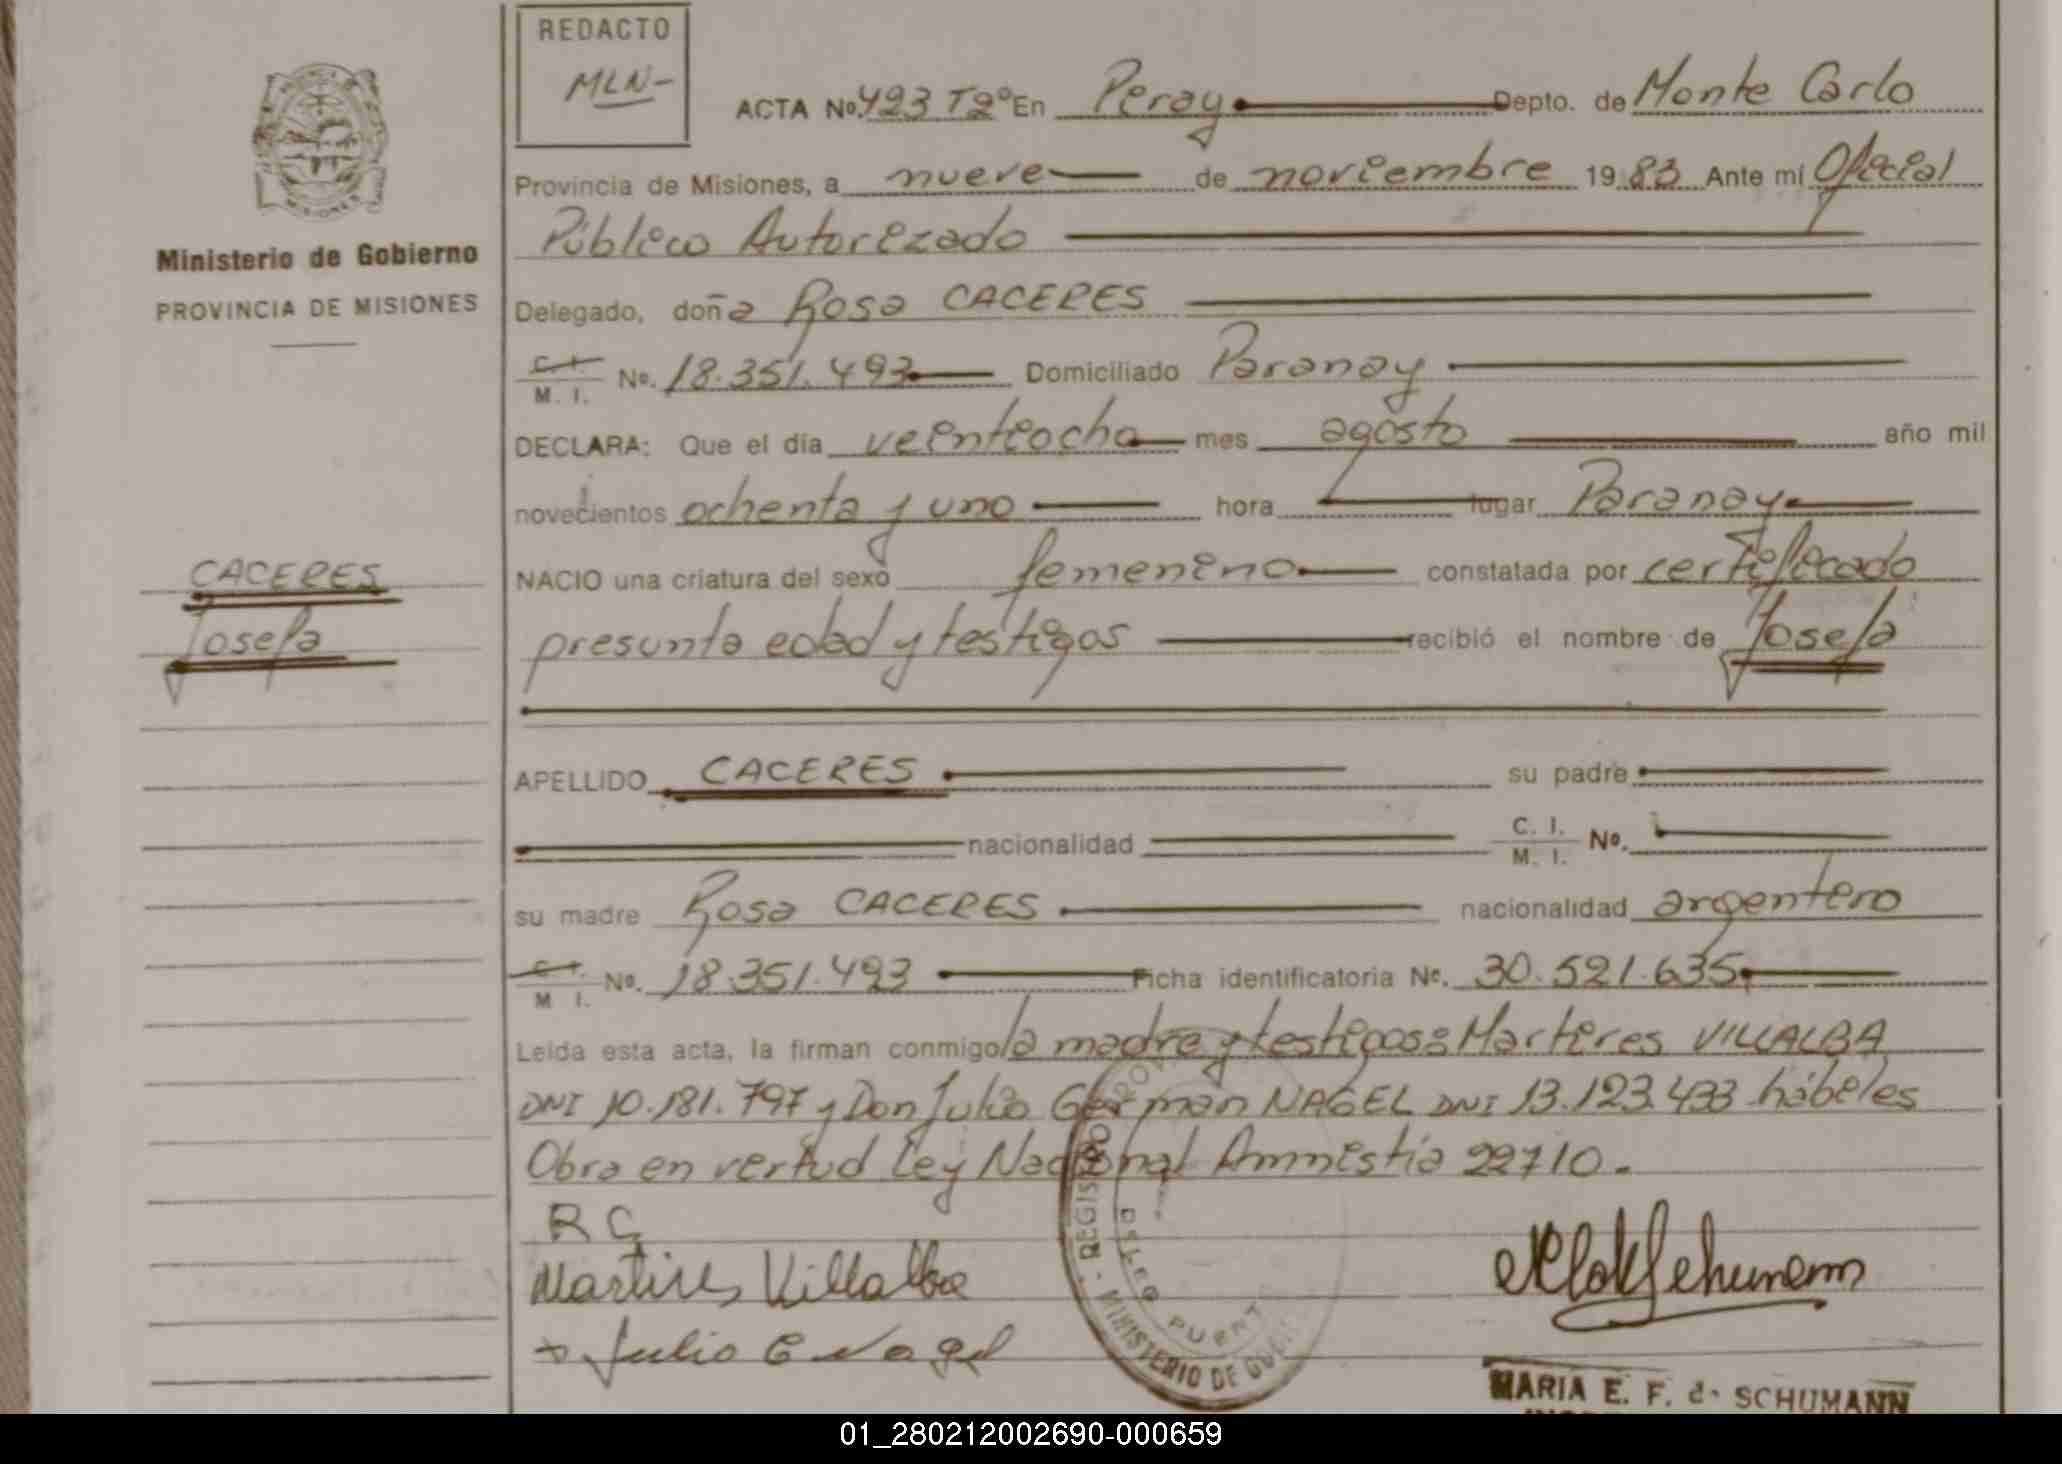 REDACTO
MLN-
ACTA No. 423 Tº2º En Peray Depto. de Monte Carlo
Provincia de Misiones, a nueve de noviembre 1983 Ante mi Oficial
Público Autorizado
Ministerio de Gobierno
PROVINCIA DE MISIONES
Delegado, doña Rosa CACERES
C. I.
M. I. No. 18.351.493 Domiciliado Paranay
DECLARA: Que el día veintiocho mes agosto año mil
novecientos ochenta y uno hora lugar Paranay
NACIO una criatura del sexo femenino constatada por certificado
presunta edad y testigos recibió el nombre de Josefa
CACERES
Josefa
APELLIDO CACERES su padre
nacionalidad C. I.
M. I. No.
su madre Rosa CACERES nacionalidad argentino
C. I.
M I. No. 18.351.493 Ficha identificatoria No. 30.521.635
Leída esta acta, la firman conmigo la madre y testigos: Martires VILLALBA
DNI 10.181.797 y Don Julio German NAGEL DNI 13.123.433 hábiles
Obra en virtud Ley Nacional Amnistía 22710.
R C
Martires Villalba
Julio G Nagel
REGISTRO PROV
MINISTERIO DE GOBI
PUERT
MARIA E. F. de SCHUMANN
01_280212002690-000659